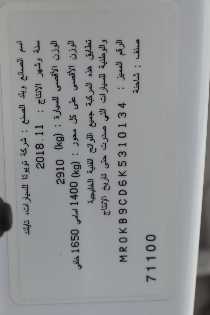 اسم الصانع وبلد الصنع : شركة تويوتا للسيارات، تايلند
سنة وشهر الإنتاج : 11 . 2018
الوزن الأقصى للسيارة : (kg) 2910
الوزن الأقصى على كل محور : (kg) 1400 أمامي 1650 خلفي
تطابق هذه المركبة جميع اللوائح الفنية الخليجية
والوطنية للسيارات التي صدرت حتى تاريخ الإنتاج
الرقم المميز : MR0KB9CD6K5310134
صنف : شاحنة
71100